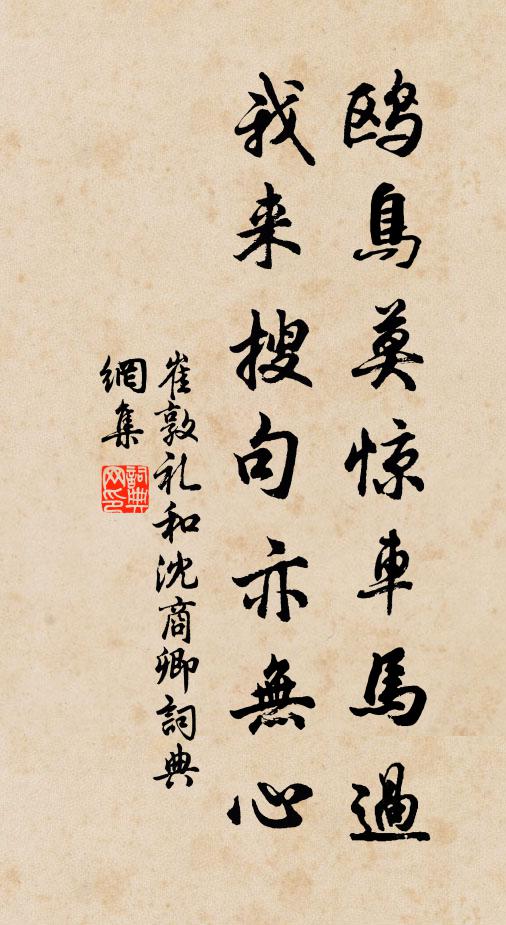 鸥鳥莫惊車馬過
我来搜句亦無心
崔敦礼和沈商卿詞典
網集
詞典
网印